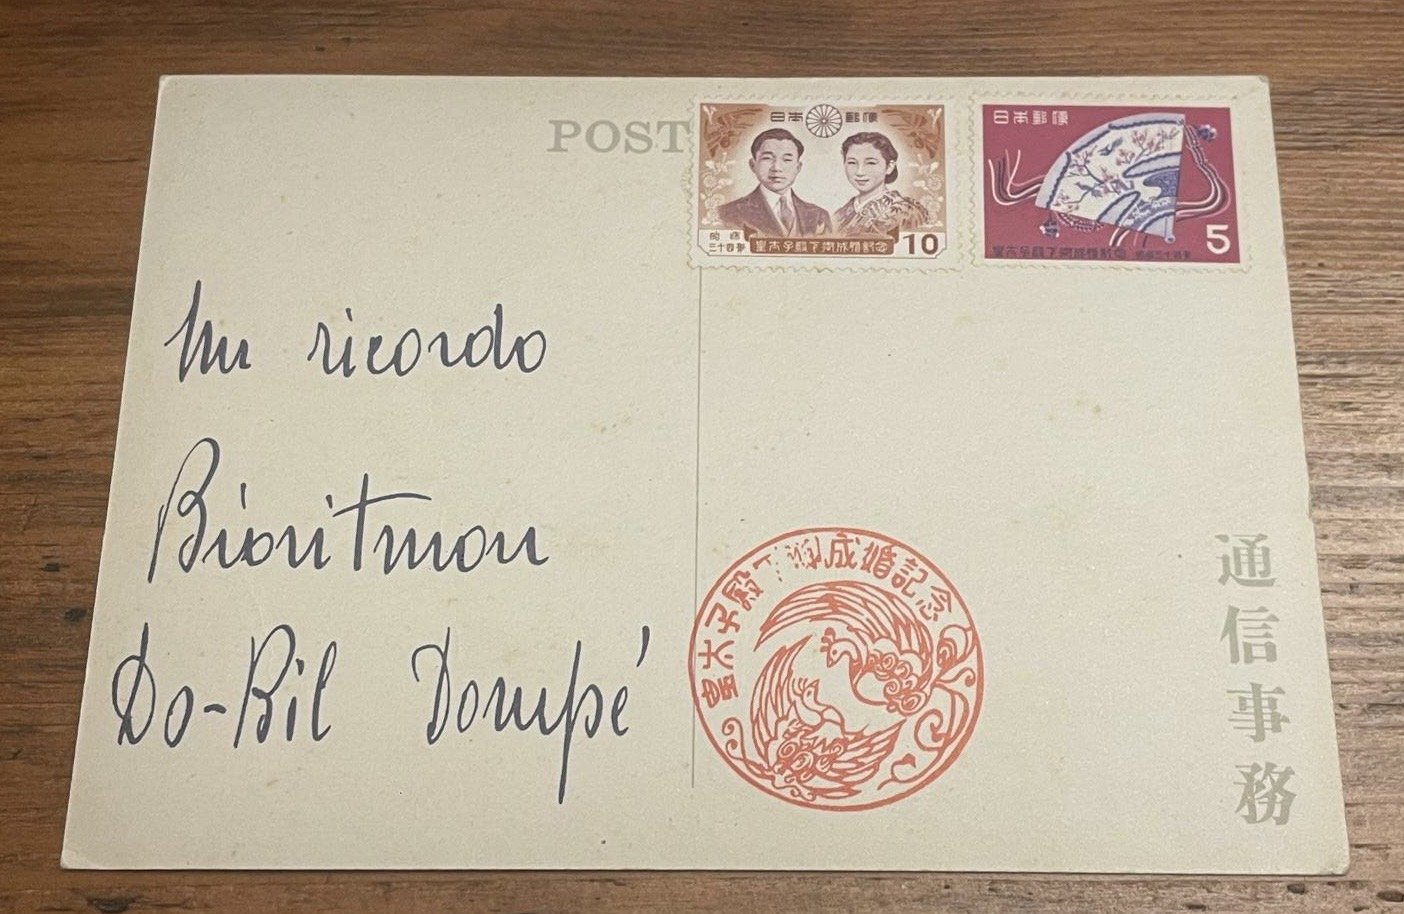 POST
日本郵便
昭和
三十四年
皇太子殿下御成婚記念
10
日本郵便
5
皇太子殿下御成婚記念 昭和三十四年
Un ricordo
Bioritmon
Do-Bil Dompé
皇太子殿下御成婚記念
通信事務